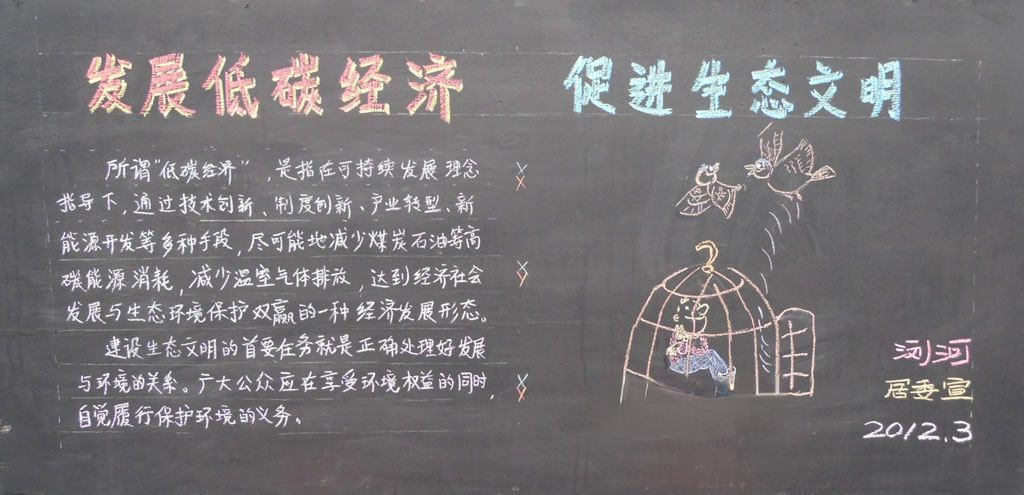 发展低碳经济 促进生态文明
所谓“低碳经济”,是指在可持续发展理念
指导下,通过技术创新、制度创新、产业转型、新
能源开发等多种手段,尽可能地减少煤炭石油等高
碳能源消耗,减少温室气体排放,达到经济社会
发展与生态环境保护双赢的一种经济发展形态。
建设生态文明的首要任务就是正确处理好发展
与环境的关系。广大公众应在享受环境权益的同时,
自觉履行保护环境的义务。
浏河
居委宣
2012.3